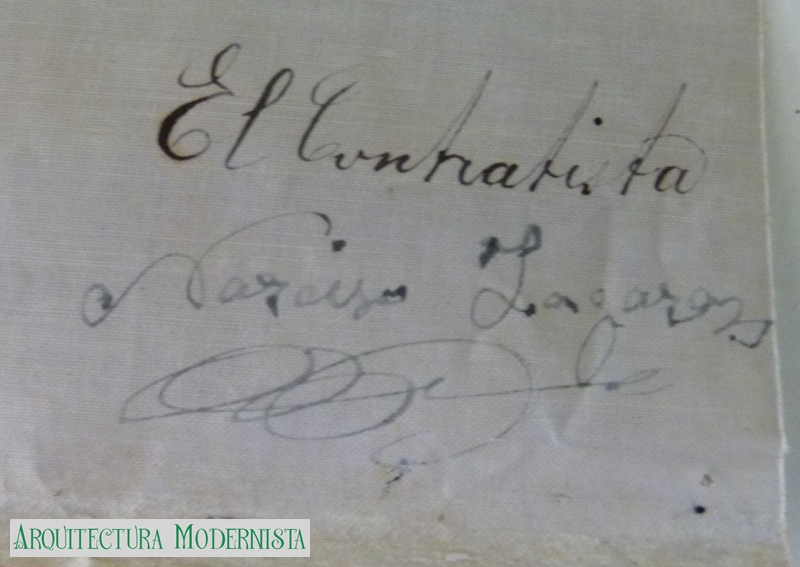 El Contratista
Narciso
ARQUITECTURA MODERNISTA